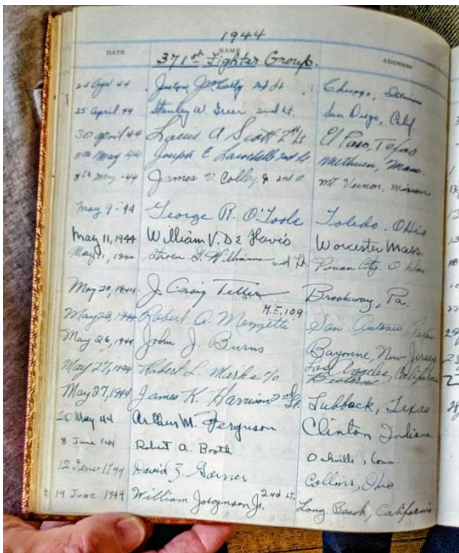 1944
DATE NAME ADDRESS
371st Fighter Group.
25 April 44 Stanley W 2nd Lt. San Diego, Calif
30 April 44 A Scott 2nd Lt El Paso, Texas
May 44 Joseph E 2nd Lt Methuen, Mass.
8th May -44 James V Colley Jr 2nd Lt Mt Vernon, Missouri
May 9 - 44 George R. O'Toole Toledo, Ohio
May 11, 1944 William V. De Flavio Worcester Mass.
May 11, 1944 Williams 2nd Lt Ponca City, Okla
May 20, 1944 J. Craig Teller Brockway, Pa.
M.E. 109
May 1944 Robert A. San Antonio Texas
May 26, 1944 John J. Burns Bayonne, New Jersey
May 27, 1944 Robert L. Marks Los Angeles, California
May 27, 1944 James K. Harrison 2nd Lt. Lubbock, Texas
30 May 44 Arthur M. Ferguson Clinton Indiana
8 June 44 Robert A. Booth Oakville, Conn.
12 June 1944 David Z. Garner Collins, Ohio
14 June 1944 William Jorgenson Jr. 2nd Lt. Long Beach, California